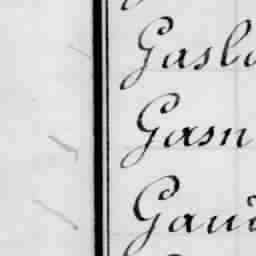 Gaslo
Gasn
Gaui